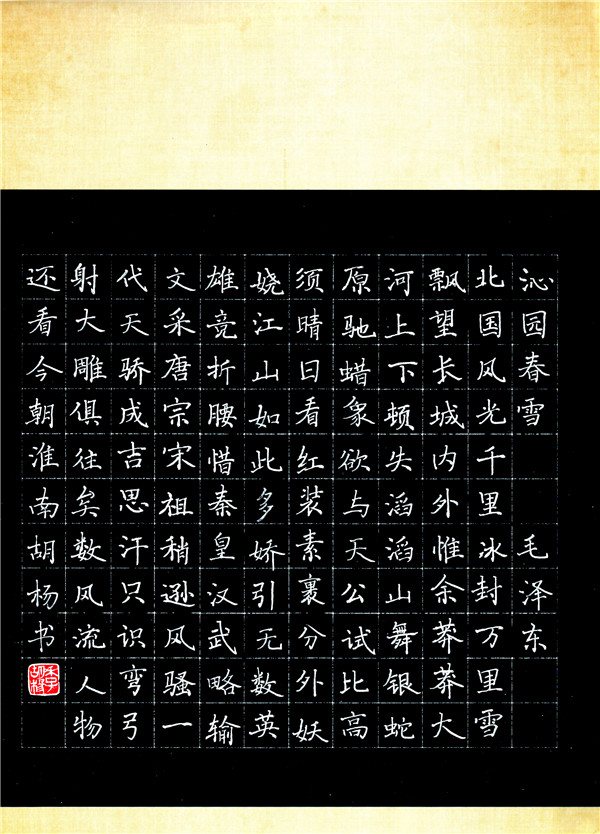 沁园春雪 毛泽东
北国风光千里冰封万里雪
飘望长城内外惟余莽莽大
河上下顿失滔滔山舞银蛇
原驰蜡象欲与天公试比高
须晴日看红装素裹分外妖
娆江山如此多娇引无数英
雄竞折腰惜秦皇汉武略输
文采唐宗宋祖稍逊风骚一
代天骄成吉思汗只识弯弓
射大雕俱往矣数风流人物
还看今朝淮南胡杨书